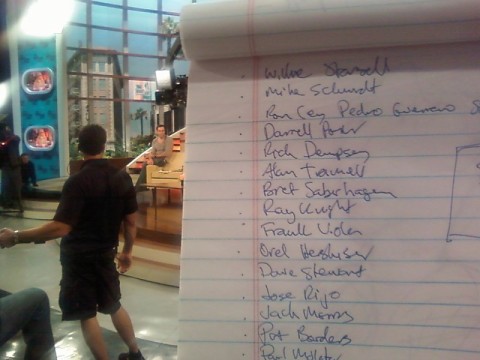 Willie Stargell
Mike Schmidt
Ron Cey Pedro Guerrero S
Darrell Porter
Rick Dempsey
Alan Trammell
Bret Saberhagen
Ray Knight
Frank Viola
Orel Hershiser
Dave Stewart
Jose Rijo
Jack Morris
Pat Borders
Paul Molitor